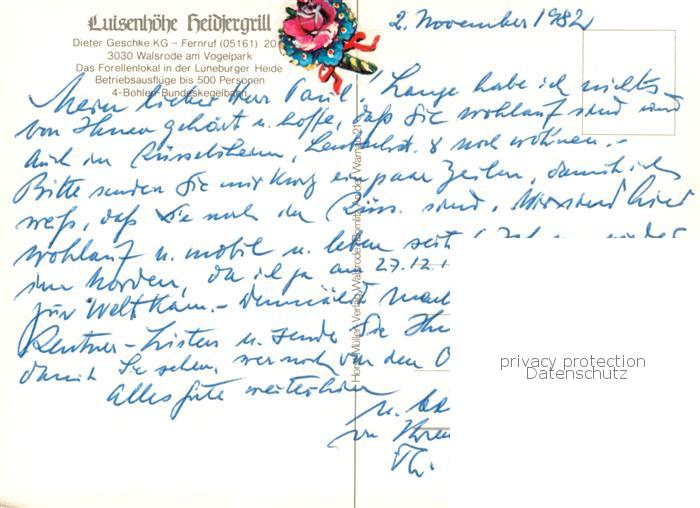 Luisenhöhe Heidjergrill
Dieter Geschke KG – Fernruf (05161) 20
3030 Walsrode am Vogelpark
Das Forellenlokal in der Lüneburger Heide
Betriebsausflüge bis 500 Personen
4-Bohlen-Bundeskegelbahn
2. November 1982
Mein lieber Herr Paul! Lange habe ich nichts
von Ihnen gehört u. hoffe, daß Sie wohlauf sind und
auch in Rüsselsheim, 8 noch wohnen.-
Bitte senden Sie mir kurz ein paar Zeilen, damit ich
weiß, daß Sie noch in Rüss. sind. Wir sind hier
wohlauf u. mobil u. leben seit
im Norden, da ich ja am 27.12.
zur Welt kam.- Demnächst
Rentner-Listen u. sende Sie Ihn
damit Sie sehen, wer noch von den
Alles Gute weiterhin
u.
von Ihrem
Horst Müller Verlag, Walsrode
privacy protection
Datenschutz